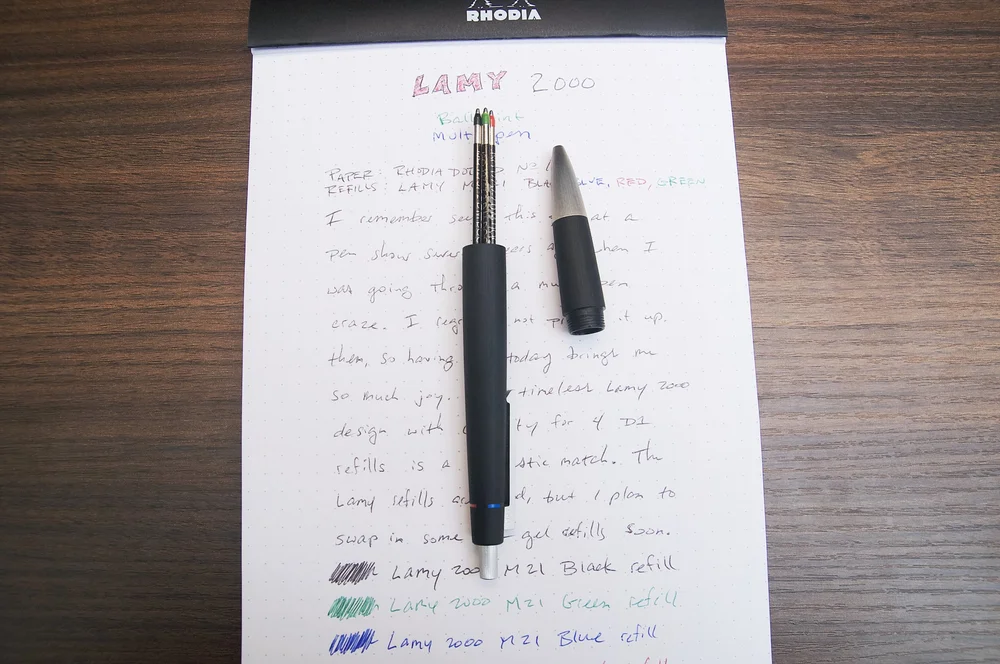 RHODIA
LAMY 2000
Ball int
Mult pen
PAPER: RHODIA DOT D No 1
REFILLS: LAMY M21 BLA LUE, RED, GREEN
I remember this at a
pen show when I
was going thro a mu pen
craze. I reg not p it up
then, so having today brings me
so much joy. timeless Lamy 2000
design with ty for 4 D1
refills is a stic match. The
Lamy refills a d, but I plan to
swap in some gel refills soon.
Lamy 200 M21 Black refill
Lamy 2000 M21 Green refill
Lamy 2000 M21 Blue refill
refill